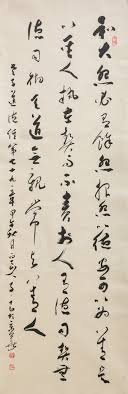 和大怨必有餘怨報怨以德安可以為善是
以聖人執左契而不責於人有德司契無
德司徹天道無親常与善人
老子道德經第七十九章甲午秋月